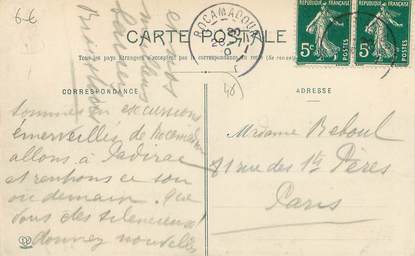 6-6
CARTE POSTALE
Tous les pays étrangers n'acceptent pas la correspondance au recto.
ROCAMADOUR
REPUBLIQUE FRANÇAISE
5c
POSTES
REPUBLIQUE FRANÇAISE
5c
POSTES
CORRESPONDANCE
ADRESSE
Sommes en excursions
émerveillés de Rocamadour
allons à Padirac
et rentrons ce soir
ou demain. Que
vous êtes silencieux!
donnez nouvelles
Madame Reboul
81 rue des Sts Pères
Paris